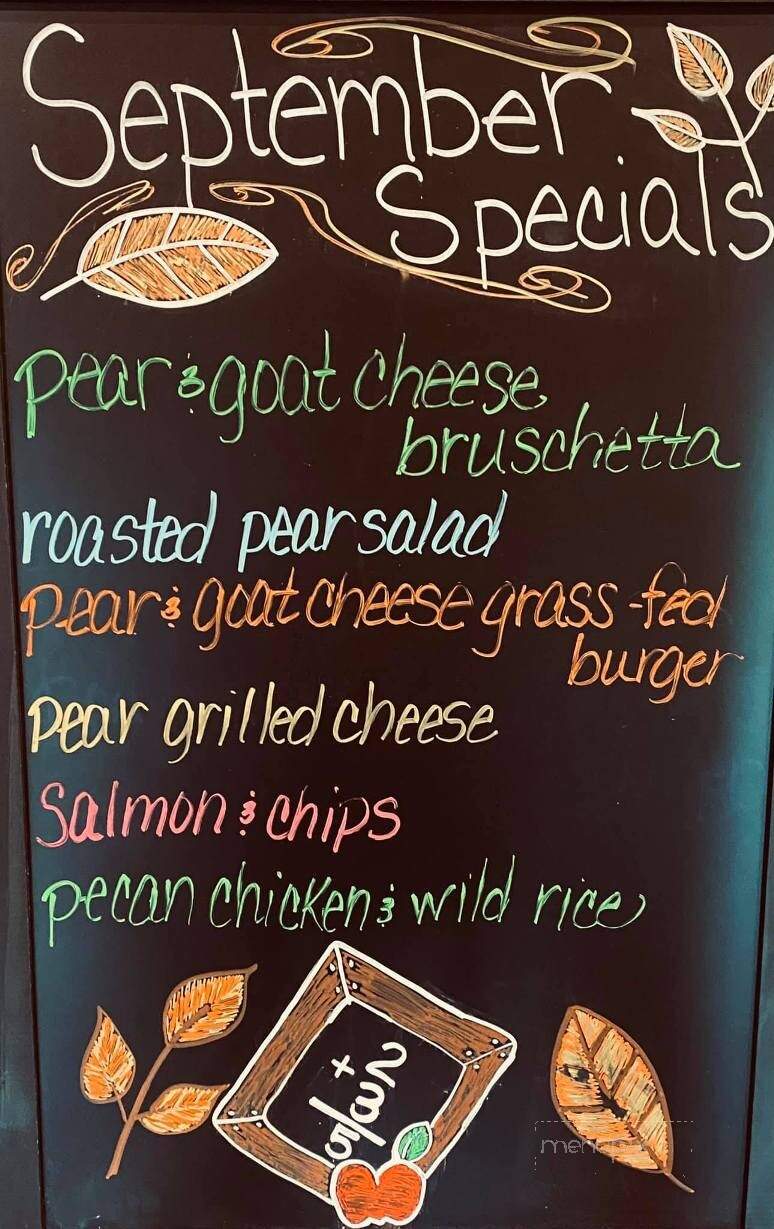 September
Specials
pear & goat cheese
bruschetta
roasted pear salad
pear & goat cheese grass-fed
burger
pear grilled cheese
Salmon & chips
pecan chicken & wild rice